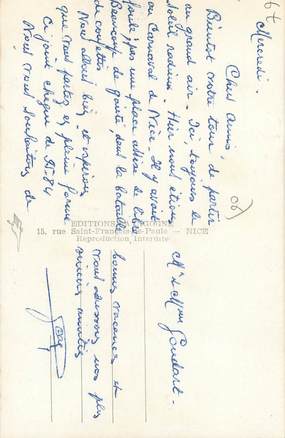 Mercredi.
Chers amis,
Bientôt votre tour de partir
au grand air. Ici, toujours le
soleil radieux. Hier nous étions
au Carnaval de Nice. Il y avait
foule : pas une place assise de libre
Beaucoup de gaieté dans la bataille
de confettis.
Nous allons bien et espérons
que vous partez en pleine forme
Ci-joint chèque de 81.84
Nous vous souhaitons de
bonnes vacances et
vous adressons nos plus
sincères amitiés
Mr et Mme Goudart.
06)
67
EDITIONS
15, rue Saint-François-de-Paule - NICE
Reproduction Interdite